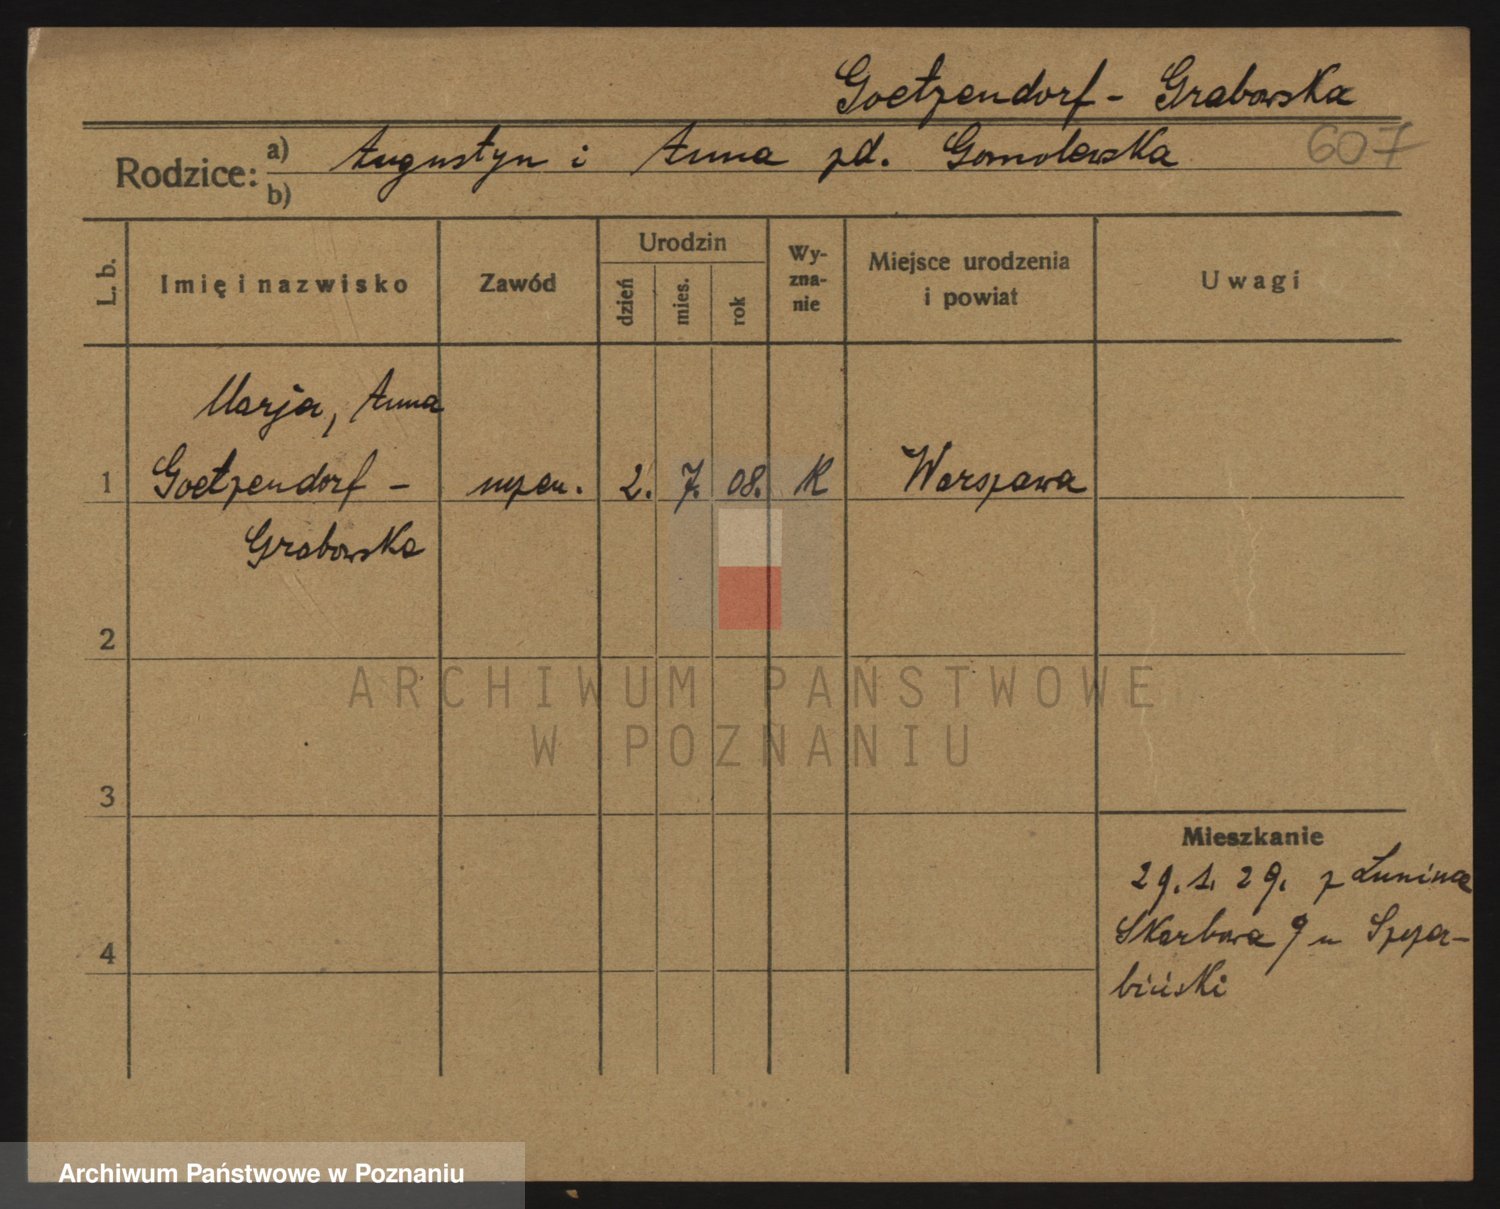 Goetzendorf - Grabowska
607
Rodzice: a) Augustyn i Anna zd. Gomolewska
b)
L. b.
Imię i nazwisko
Zawód
Urodzin
dzień
mies.
rok
Wy-
zna-
nie
Miejsce urodzenia
i powiat
Uwagi
Marja, Anna
1 Goetzendorf - 2. 7. 08. K Warszawa
Grabowska
2
ARCHIWUM PAŃSTWOWE
W POZNANIU
3
Mieszkanie
29. 1. 29. z Łunina
4 Skarbowa 9 u
biński
Archiwum Państwowe w Poznaniu